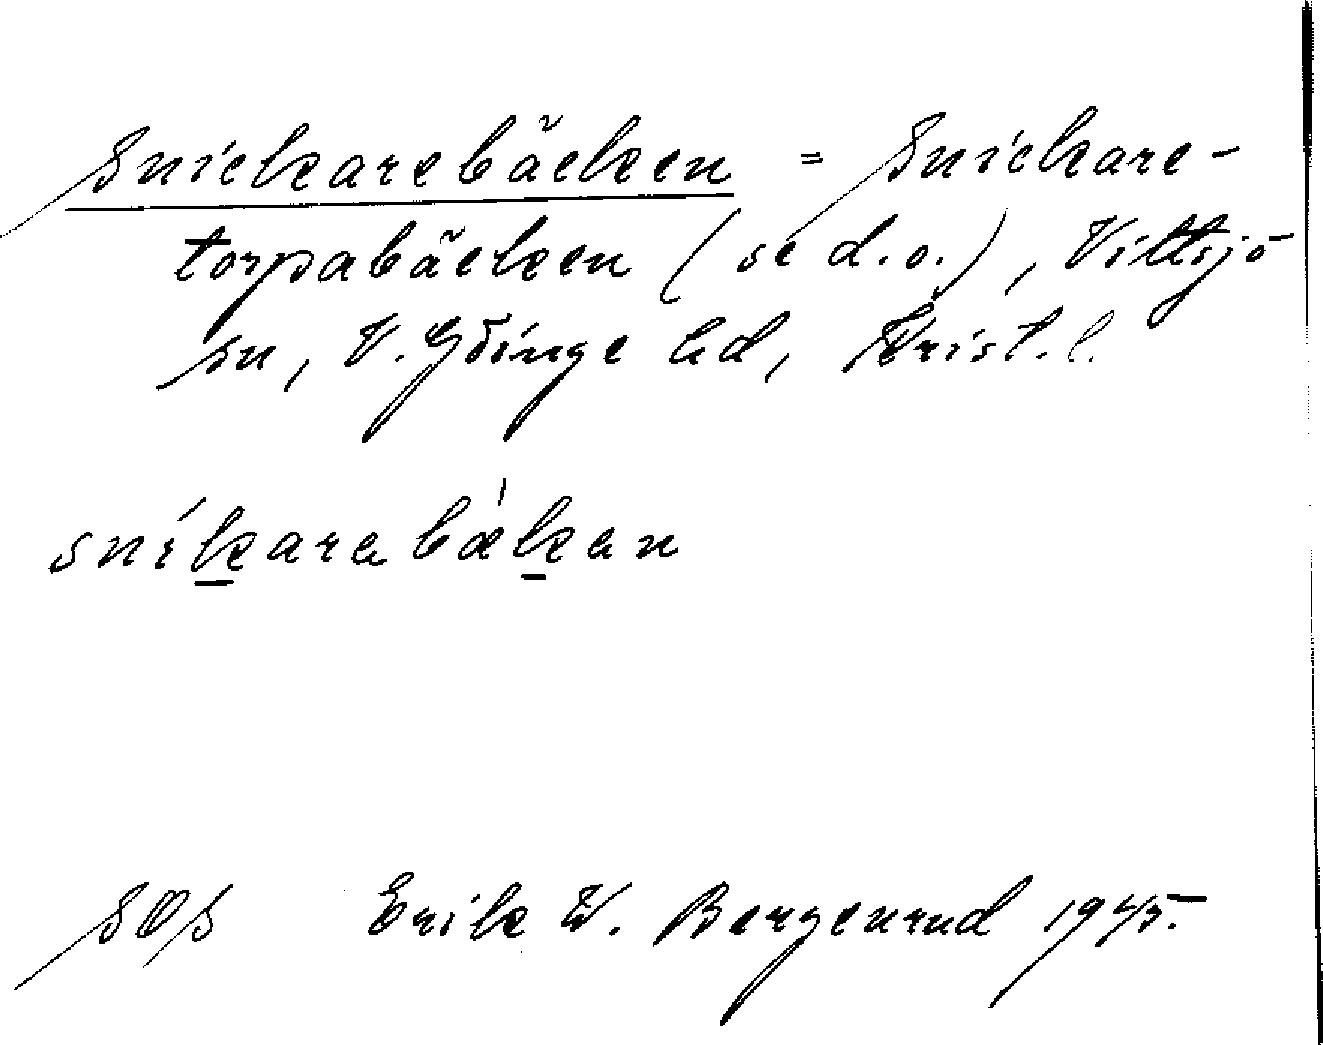 Snickarebäcken = Snickare-
torpabäcken (se d.o.), Vittsjö
sn, V. Göinge hd, Krist. l.
sníkarabǽkan
SOS Erik W. Bergenrud 1945.